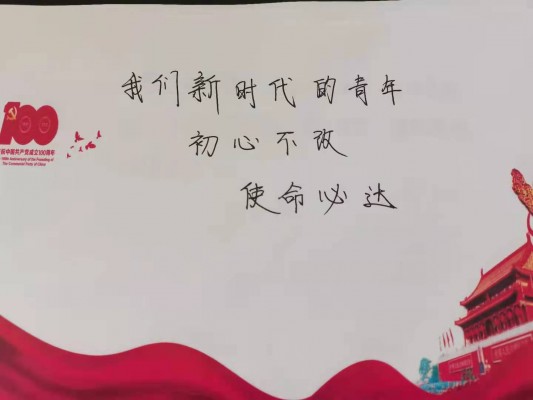 我们新时代的青年
初心不改
使命必达
100
中国共产党成立100周年
100th Anniversary of the Founding of
The Communist Party of China